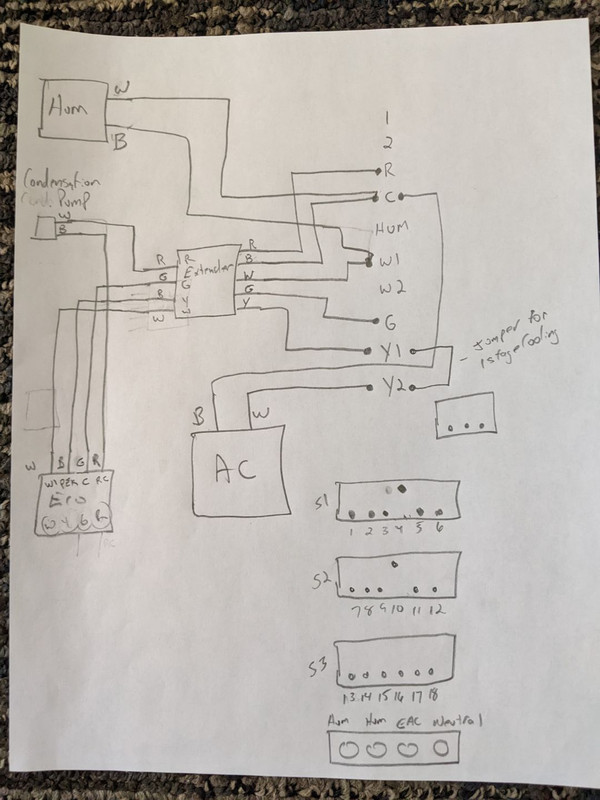 W
Hum
B
1
2
R
C
HUM
W1
W2
G
Y1
Y2
Condensation
Pump
W
B
R
G
B
W
R
Extender
G
Y
R
B
W
G
Y
- Jumper for
1 stage Cooling
B
W
AC
W B G R
C RC
W Y G R
S1
1 2 3 4 5 6
S2
7 8 9 10 11 12
S3
13 14 15 16 17 18
Hum Hum EAC Neutral